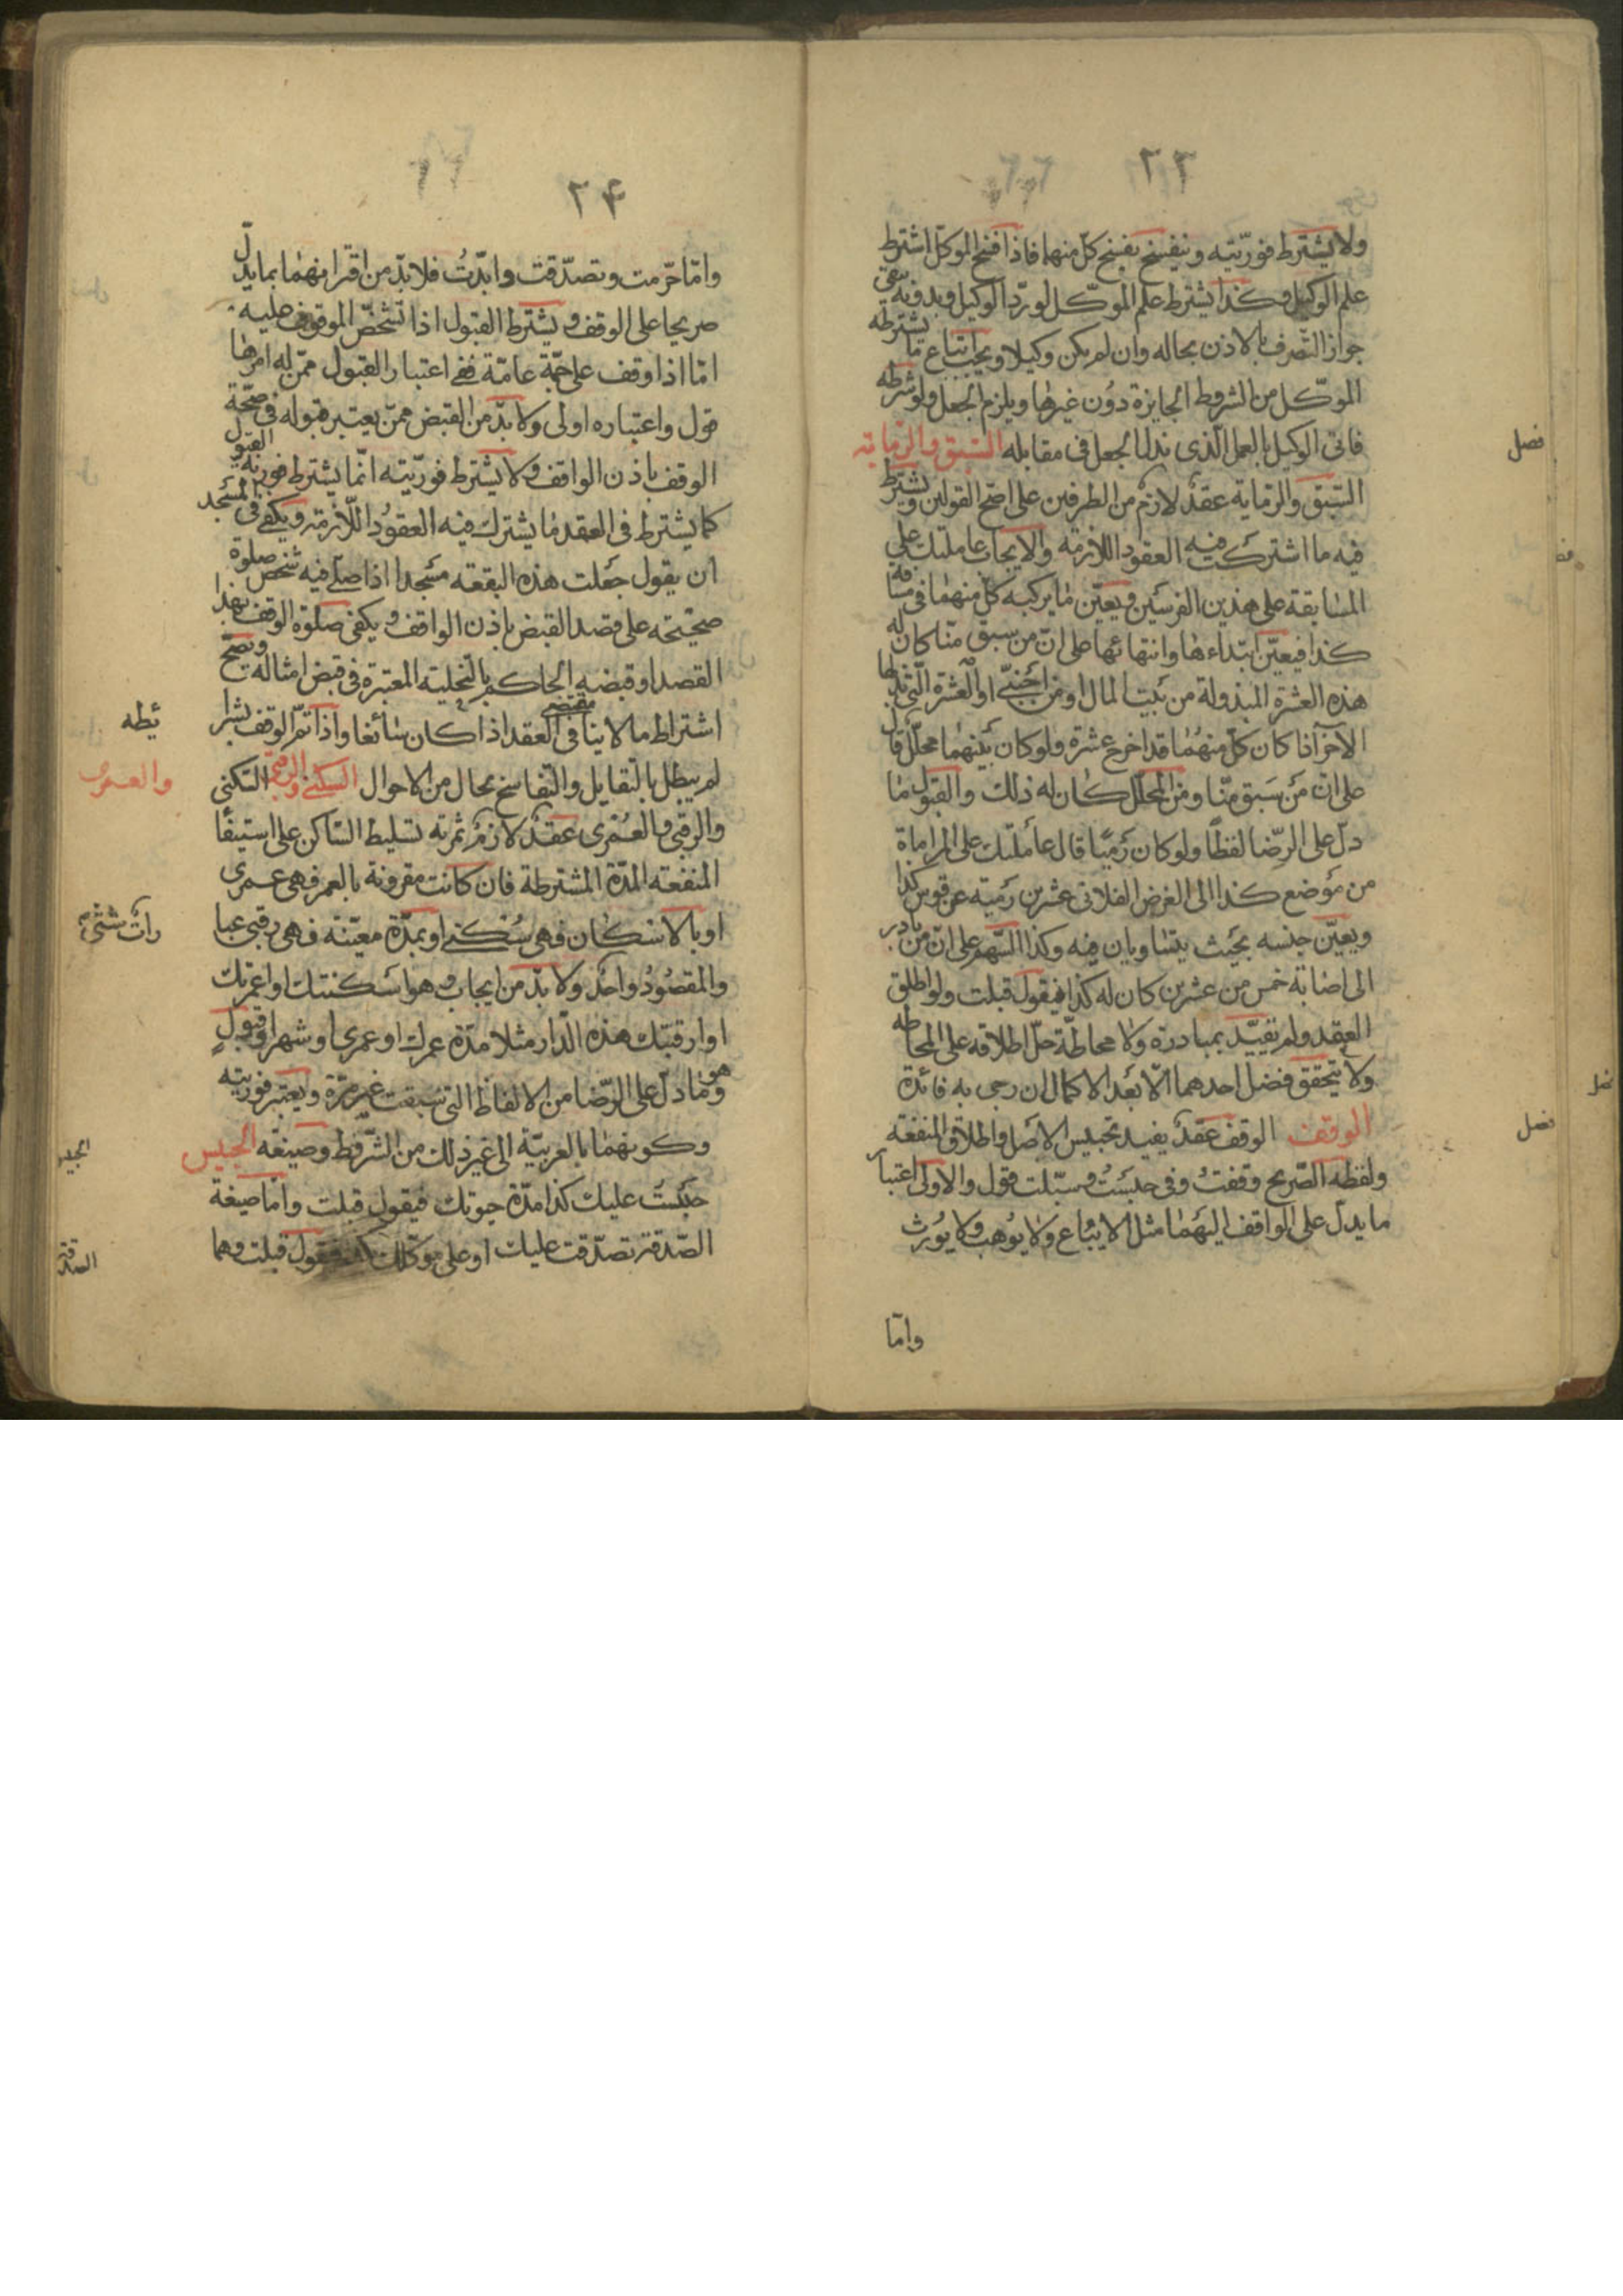 ٢٣
ولا يشترط فوريّته وينفسخ بفسخ كلّ منهما فاذا فسخ الموكّل اشترط
علم الوكيل وكذا يشترط علم الموكّل لو ردّ الوكيل وبدونه يبقى
جواز التصرف بالاذن بحاله وان لم يكن وكيلا ويجب اتباع ما يشترطه
الموكّل من الشروط الجايزة دون غيرها ويلزم الجعل ولو شرطه
فاتى الوكيل بالعمل الّذى بذل الجعل فى مقابله السّبق والرّماية
فصل
السّبق والرماية عقد لازم من الطرفين على اصحّ القولين ويشترط
فيه ما اشتركت فيه العقود اللازمة والايجاب عاملتك على
المسابقة على هذين الفرسين ويعيّن ما يركبه كلّ منهما فى مسافة
كذا فيعيّن ابتداءها وانتهائها على انّ من سبق منّا كان له
هذه العشرة المبذولة من بيت المال او من اجنبىّ او العشرة الّتى بذلها
الآخر اذا كان كلّ منهما قد اخرج عشرة ولو كان بينهما محلّل قال
على انّ من سبق منّا ومن المحلّل كان له ذلك والقبول ما
دلّ على الرّضا لفظاً ولو كان رميًا قال عاملتك على المراماة
من موضع كذا الى الغرض الفلانى عشرين رمية عن قوس كذا
ويعيّن جنسه بحيث يتساويان فيه وكذا السّهم على انّ من بادر
الى اصابة خمس من عشرين كان له كذا فيقول قبلت ولو اطلق
العقد ولم يقيّد بمبادرة ولا محاطّة حلّ اطلاقه على المحاطه
ولا يتحقق فضل احدهما الّا بعد الاكمال ان رجى به فائدة
الوقف الوقف عقد يفيد تحبيس الاصل واطلاق المنفعة
فصل
ولفظه الصّريح وقفت وفى حبست وسبّلت قول والاولى اعتبار
ما يدلّ على الواقف اليهما مثل لا يباع ولا يوهب ولا يورث
وامّا
٢۴
وامّا حرّمت وتصدّقت وابّدت فلا بدّ من اقترانهما بما يدلّ
صريحا على الوقف ويشترط القبول اذا تشخّص الموقوف عليه
امّا اذا وقف على جهة عامّة ففى اعتبار القبول ممّن له امرها
قول واعتباره اولى ولا بدّ من القبض ممّن يعتبر قبوله فى صحّة
الوقف باذن الواقف ولا يشترط فوريّته انّما يشترط فورية القبول
كما يشترط فى العقد ما يشترك فيه العقود اللّازمة ويكفى فى المسجد
ان يقول جعلت هذه البقعة مسجدا اذا صلّى فيه شخص صلوة
صحيحة على قصد القبض باذن الواقف ويكفى صلوة الوقف بهذا
القصد او قبضه الحاكم بالتخلية المعتبرة فى قبض امثاله ويصحّ
اشتراط ما لا ينافى مقتضى العقد اذا كان سائغا واذا تمّ الوقف بشرا
ئطه
لم يبطل بالتقايل والتّفاسخ بحال من الاحوال السكنى والرقبى السّكنى
والعمرى
والرقبى والعمرى عقد لازم ثمرته تسليط السّاكن على استيفا
المنفعة المدّة المشترطة فان كانت مقرونة بالعمر فهى عمرى
او بالاسكان فهى سكنى او بمدّة معيّنة فهى رقبى عبا
رات شتّى
والمقصود واحد ولا بدّ من ايجاب وهو اسكنتك او اعمرتك
او ارقبتك هذه الدّار مثلا مدّة عمرك او عمرى او شهرا وقبول
وهو ما دلّ على الرّضا من الالفاظ التى سبقت غير مرّة ويعتبر فوريّته
وكونهما بالعربيّة الى غير ذلك من الشّروط وصيغة الحبيس
حبست عليك كذا مدّة حيوتك فيقول قبلت وامّا صيغة
الصّدقة تصدّقت عليك او على موكّلك فيقول قبلت وهما
الصدقة